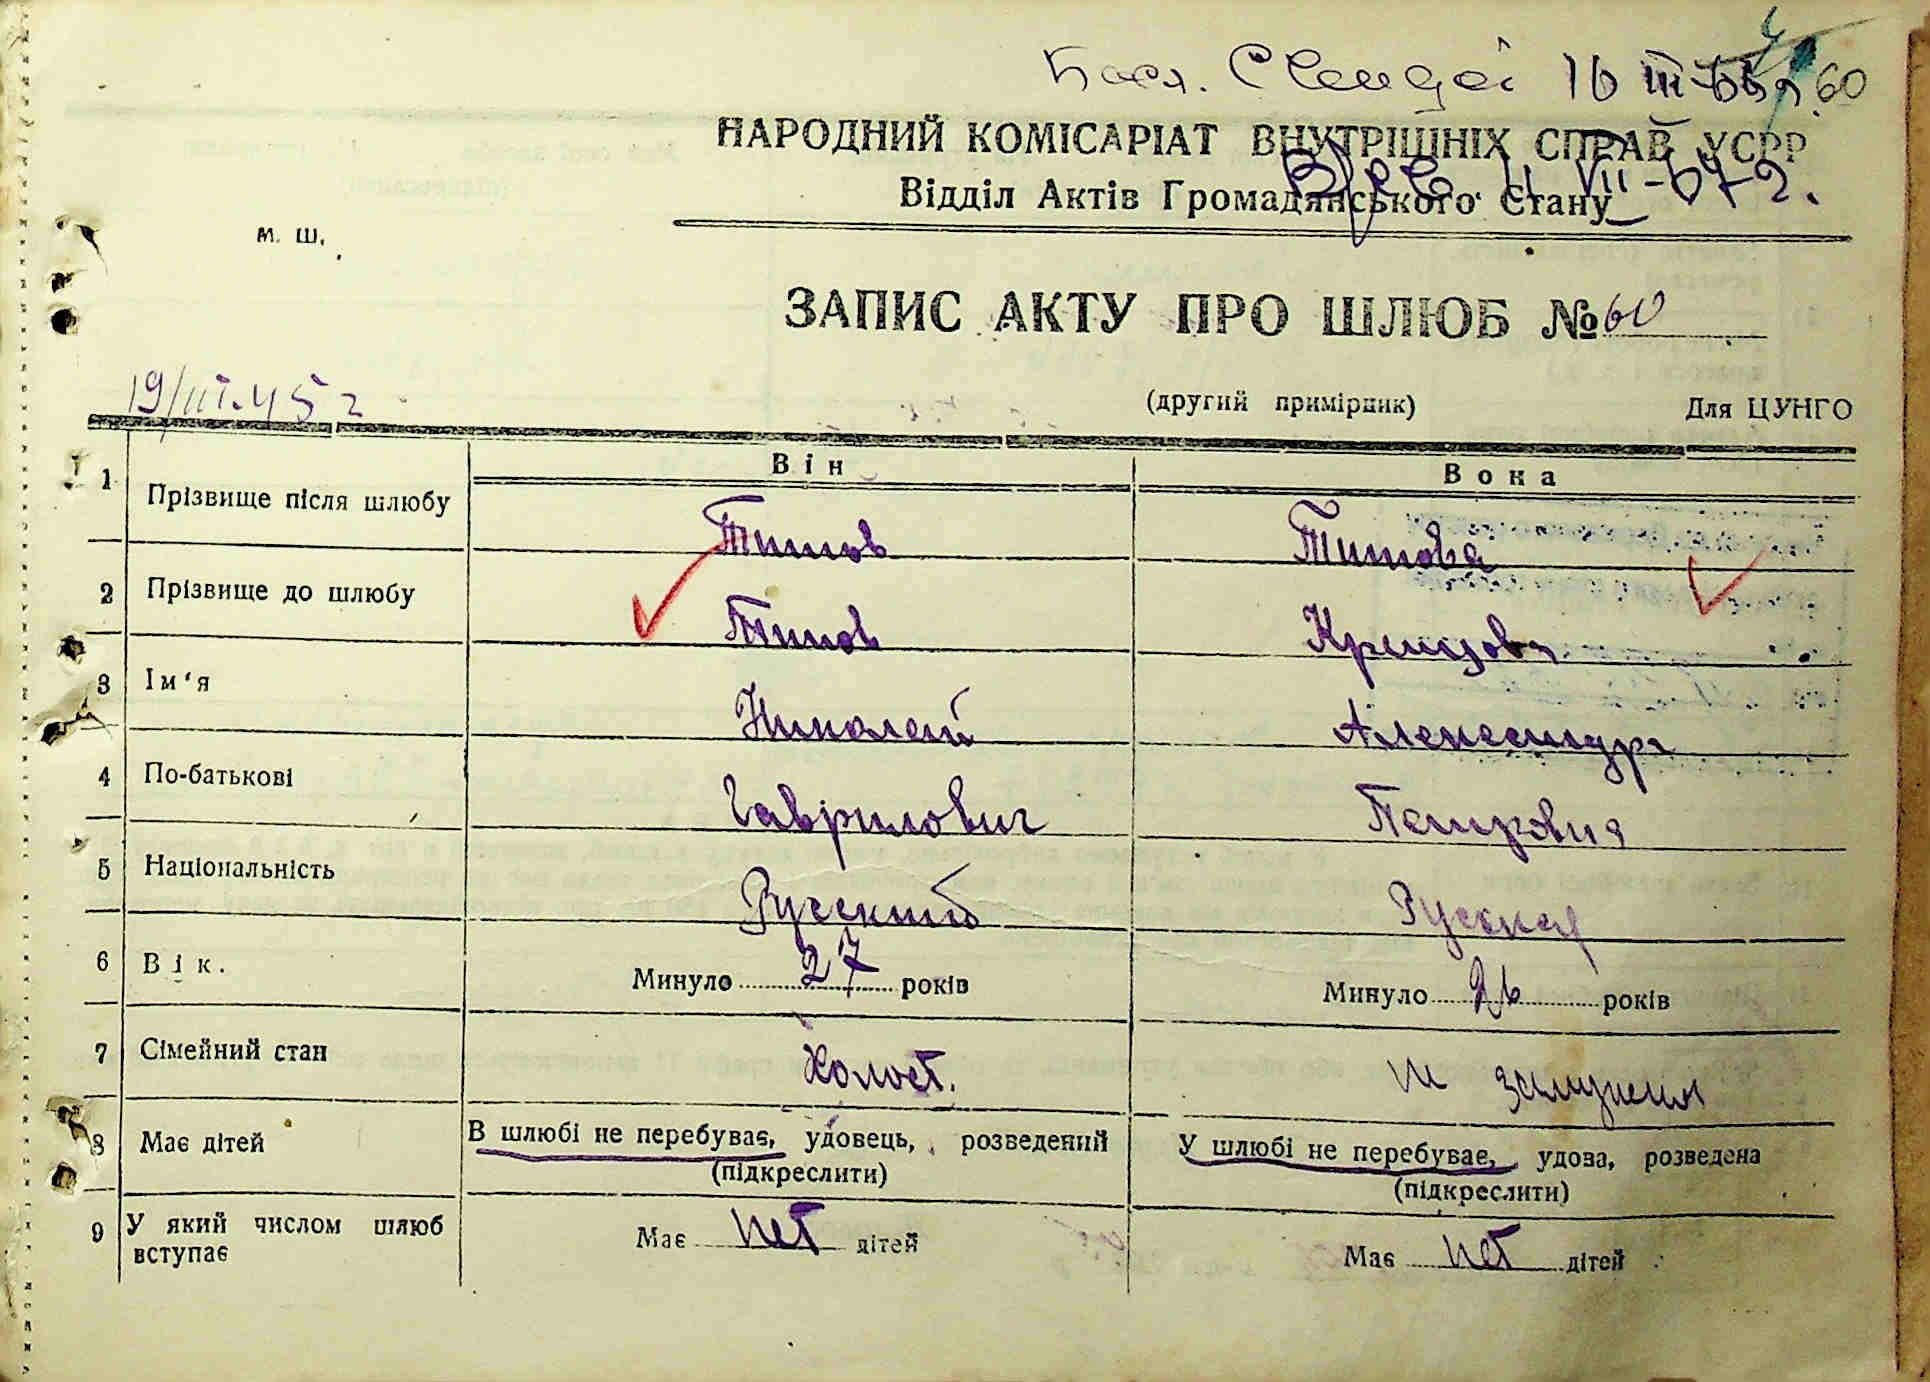 16 III-
60
НАРОДНИЙ КОМІСАРІАТ ВНУТРІШНІХ СПРАВ УСРР
Відділ Актів Громадянського Стану
VII-67 г.
м. ш.
ЗАПИС АКТУ ПРО ШЛЮБ № 60
19/III.45 г
(другий примірник) Для ЦУНГО
Він Вона
1 Прізвище після шлюбу Титов Титова
2 Прізвище до шлюбу Титов
3 Ім'я Николай Александра
4 По-батькові Гаврилович Петровна
5 Національність Русский Русская
6 Вік. Минуло 27 років Минуло 26 років
7 Сімейний стан Холост. замужем
8 Має дітей В шлюбі не перебуває, удовець, розведений У шлюбі не перебуває, удова, розведена
(підкреслити) (підкреслити)
9 У який числом шлюб вступає Має нет дітей Має нет дітей